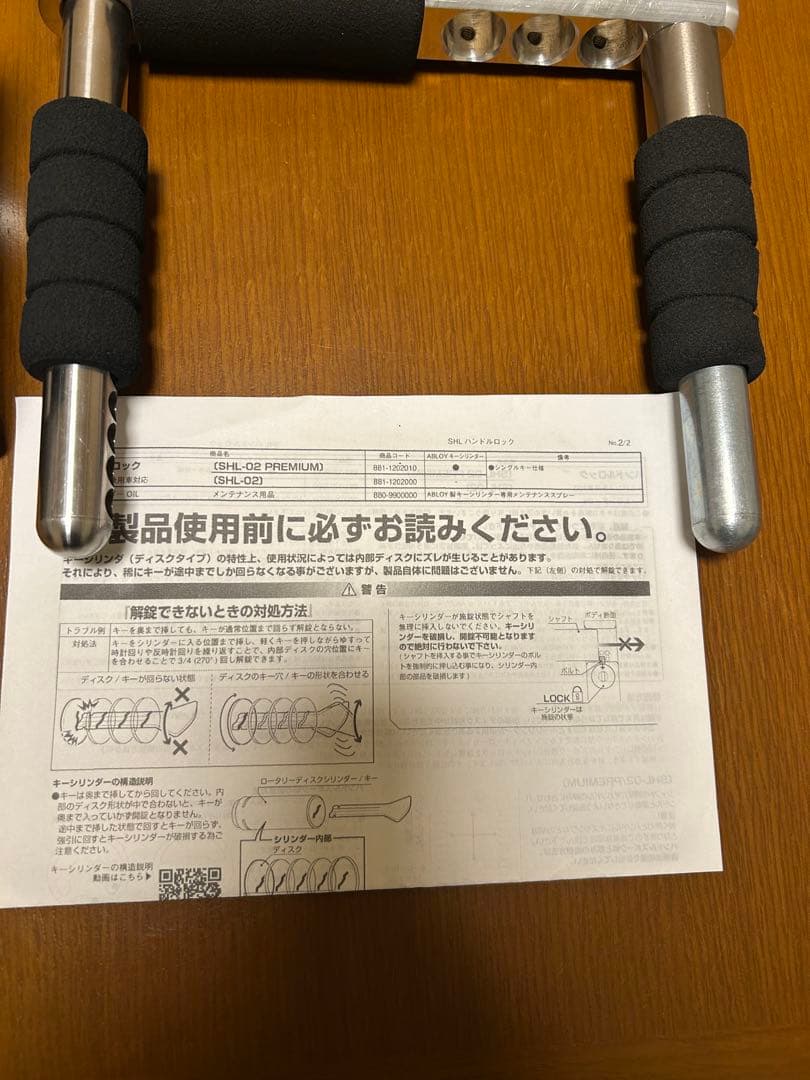 SHL ハンドルロック
No.2/2
商品名 商品コード ABLOY キーシリンダー 備考
ロック (SHL-02 PREMIUM) BB1-1202010 ● ●シングルキー仕様
用車対応 (SHL-02) BB1-1202000 - -
OIL メンテナンス用品 BB0-9900000 ABLOY 製キーシリンダー専用メンテナンススプレー
製品使用前に必ずお読みください。
キーシリンダ（ディスクタイプ）の特性上、使用状況によっては内部ディスクにズレが生じることがあります。
それにより、稀にキーが途中までしか回らなくなる事がございますが、製品自体に問題はございません。下記（左側）の対処で解錠できます。
警告
『解錠できないときの対処方法』
トラブル例 キーを奥まで挿しても、キーが通常位置まで回らず解錠とならない。
対処法 キーをシリンダーに入る位置まで挿し、軽くキーを押しながらゆすって
時計回りや反時計回りを繰り返すことで、内部ディスクの穴位置にキー
を合わせることで 3/4 (270°) 回し解錠できます。
ディスク / キーが回らない状態
ディスクのキー穴 / キーの形状を合わせる
キーシリンダーが施錠状態でシャフトを
無理に挿入しないでください。キーシリ
ンダーを破損し、開錠不可能となります
ので絶対に行わないで下さい。
(シャフトを挿入する事でキーシリンダーのボル
トを強制的に押し込む事になり、シリンダー内
部の部品を破損します)
シャフト
ボディ断面
ボルト
LOCK
キーシリンダーは
施錠の状態
キーシリンダーの構造説明
●キーは奥まで挿してから回してください。内
部のディスク形状が中で合わないと、キーが
奥まで入っていかず開錠となりません。
途中まで挿した状態で回すとキーが回らず、
強引に回すとキーシリンダーが破損する為ご
注意ください。
キーシリンダーの構造説明
動画はこちら▶
ロータリーディスクシリンダー / キー
シリンダー内部
ディスク